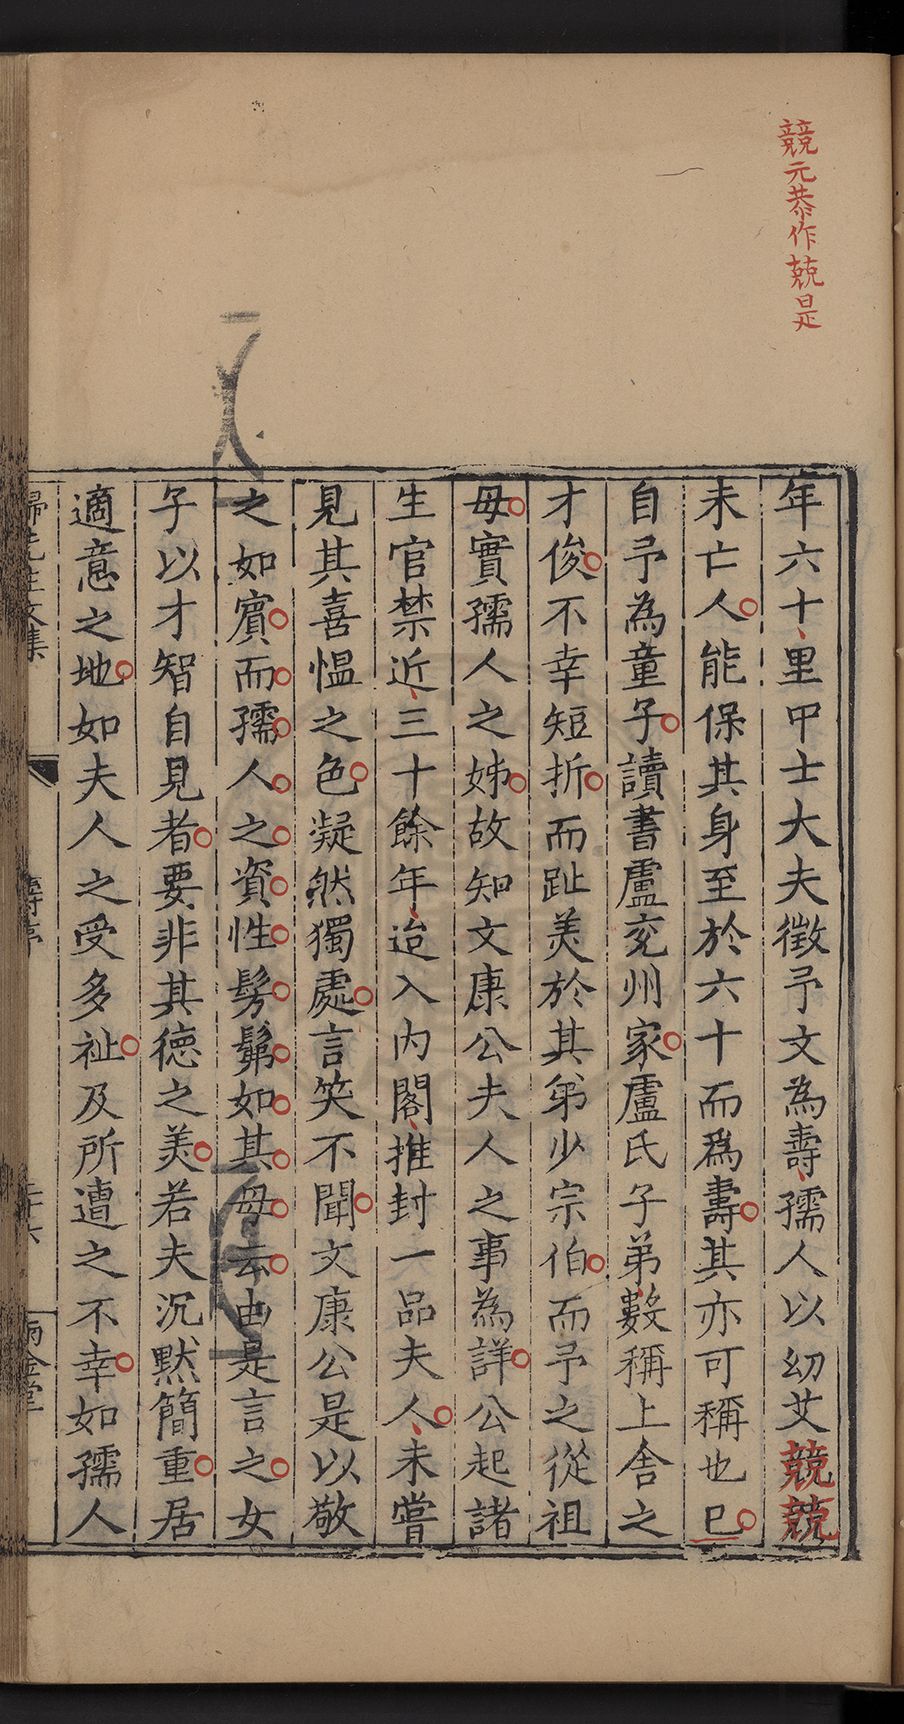 競元恭作兢是
年六十里中士大夫徵予文為壽孺人以幼艾競競
未亡人能保其身至於六十而為壽其亦可稱也已
自予為童子讀書盧兗州家盧氏子弟數稱上舍之
才俊不幸短折而趾美於其弟少宗伯而予之從祖
母實孺人之姊故知文康公夫人之事為詳公起諸
生官禁近三十餘年迨入內閣推封一品夫人未嘗
見其喜愠之色凝然獨處言笑不聞文康公是以敬
之如賓而孺人之資性髣髴如其母云由是言之女
子以才智自見者要非其德之美若夫沉默簡重居
適意之地如夫人之受多祉及所遭之不幸如孺人